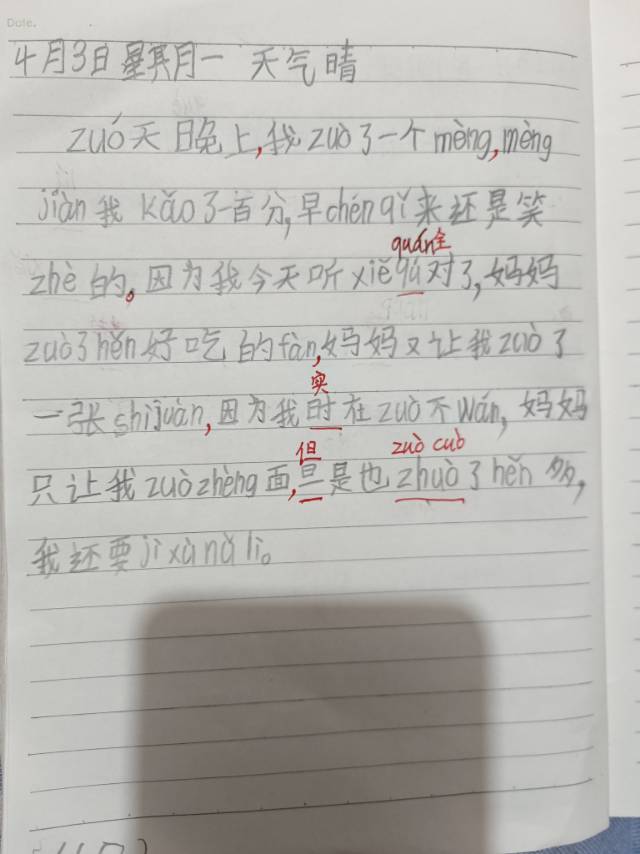 Date.
4月3日星期一 天气晴
zuó天晚上,我zuò了一个mèng,mèng
jiàn我kǎo了一百分,早chén qǐ来还是笑
quán全
zhè的。因为我今天听xiě qú对了,妈妈
zuò了hěn好吃的fàn,妈妈又让我zuò了
实
一张shìjuàn,因为我时在zuò不wán,妈妈
但 zuò cuò
只让我zuò zhèng面,旦是也zhuò了hěn多,
我还要jì xù nǔ lì。